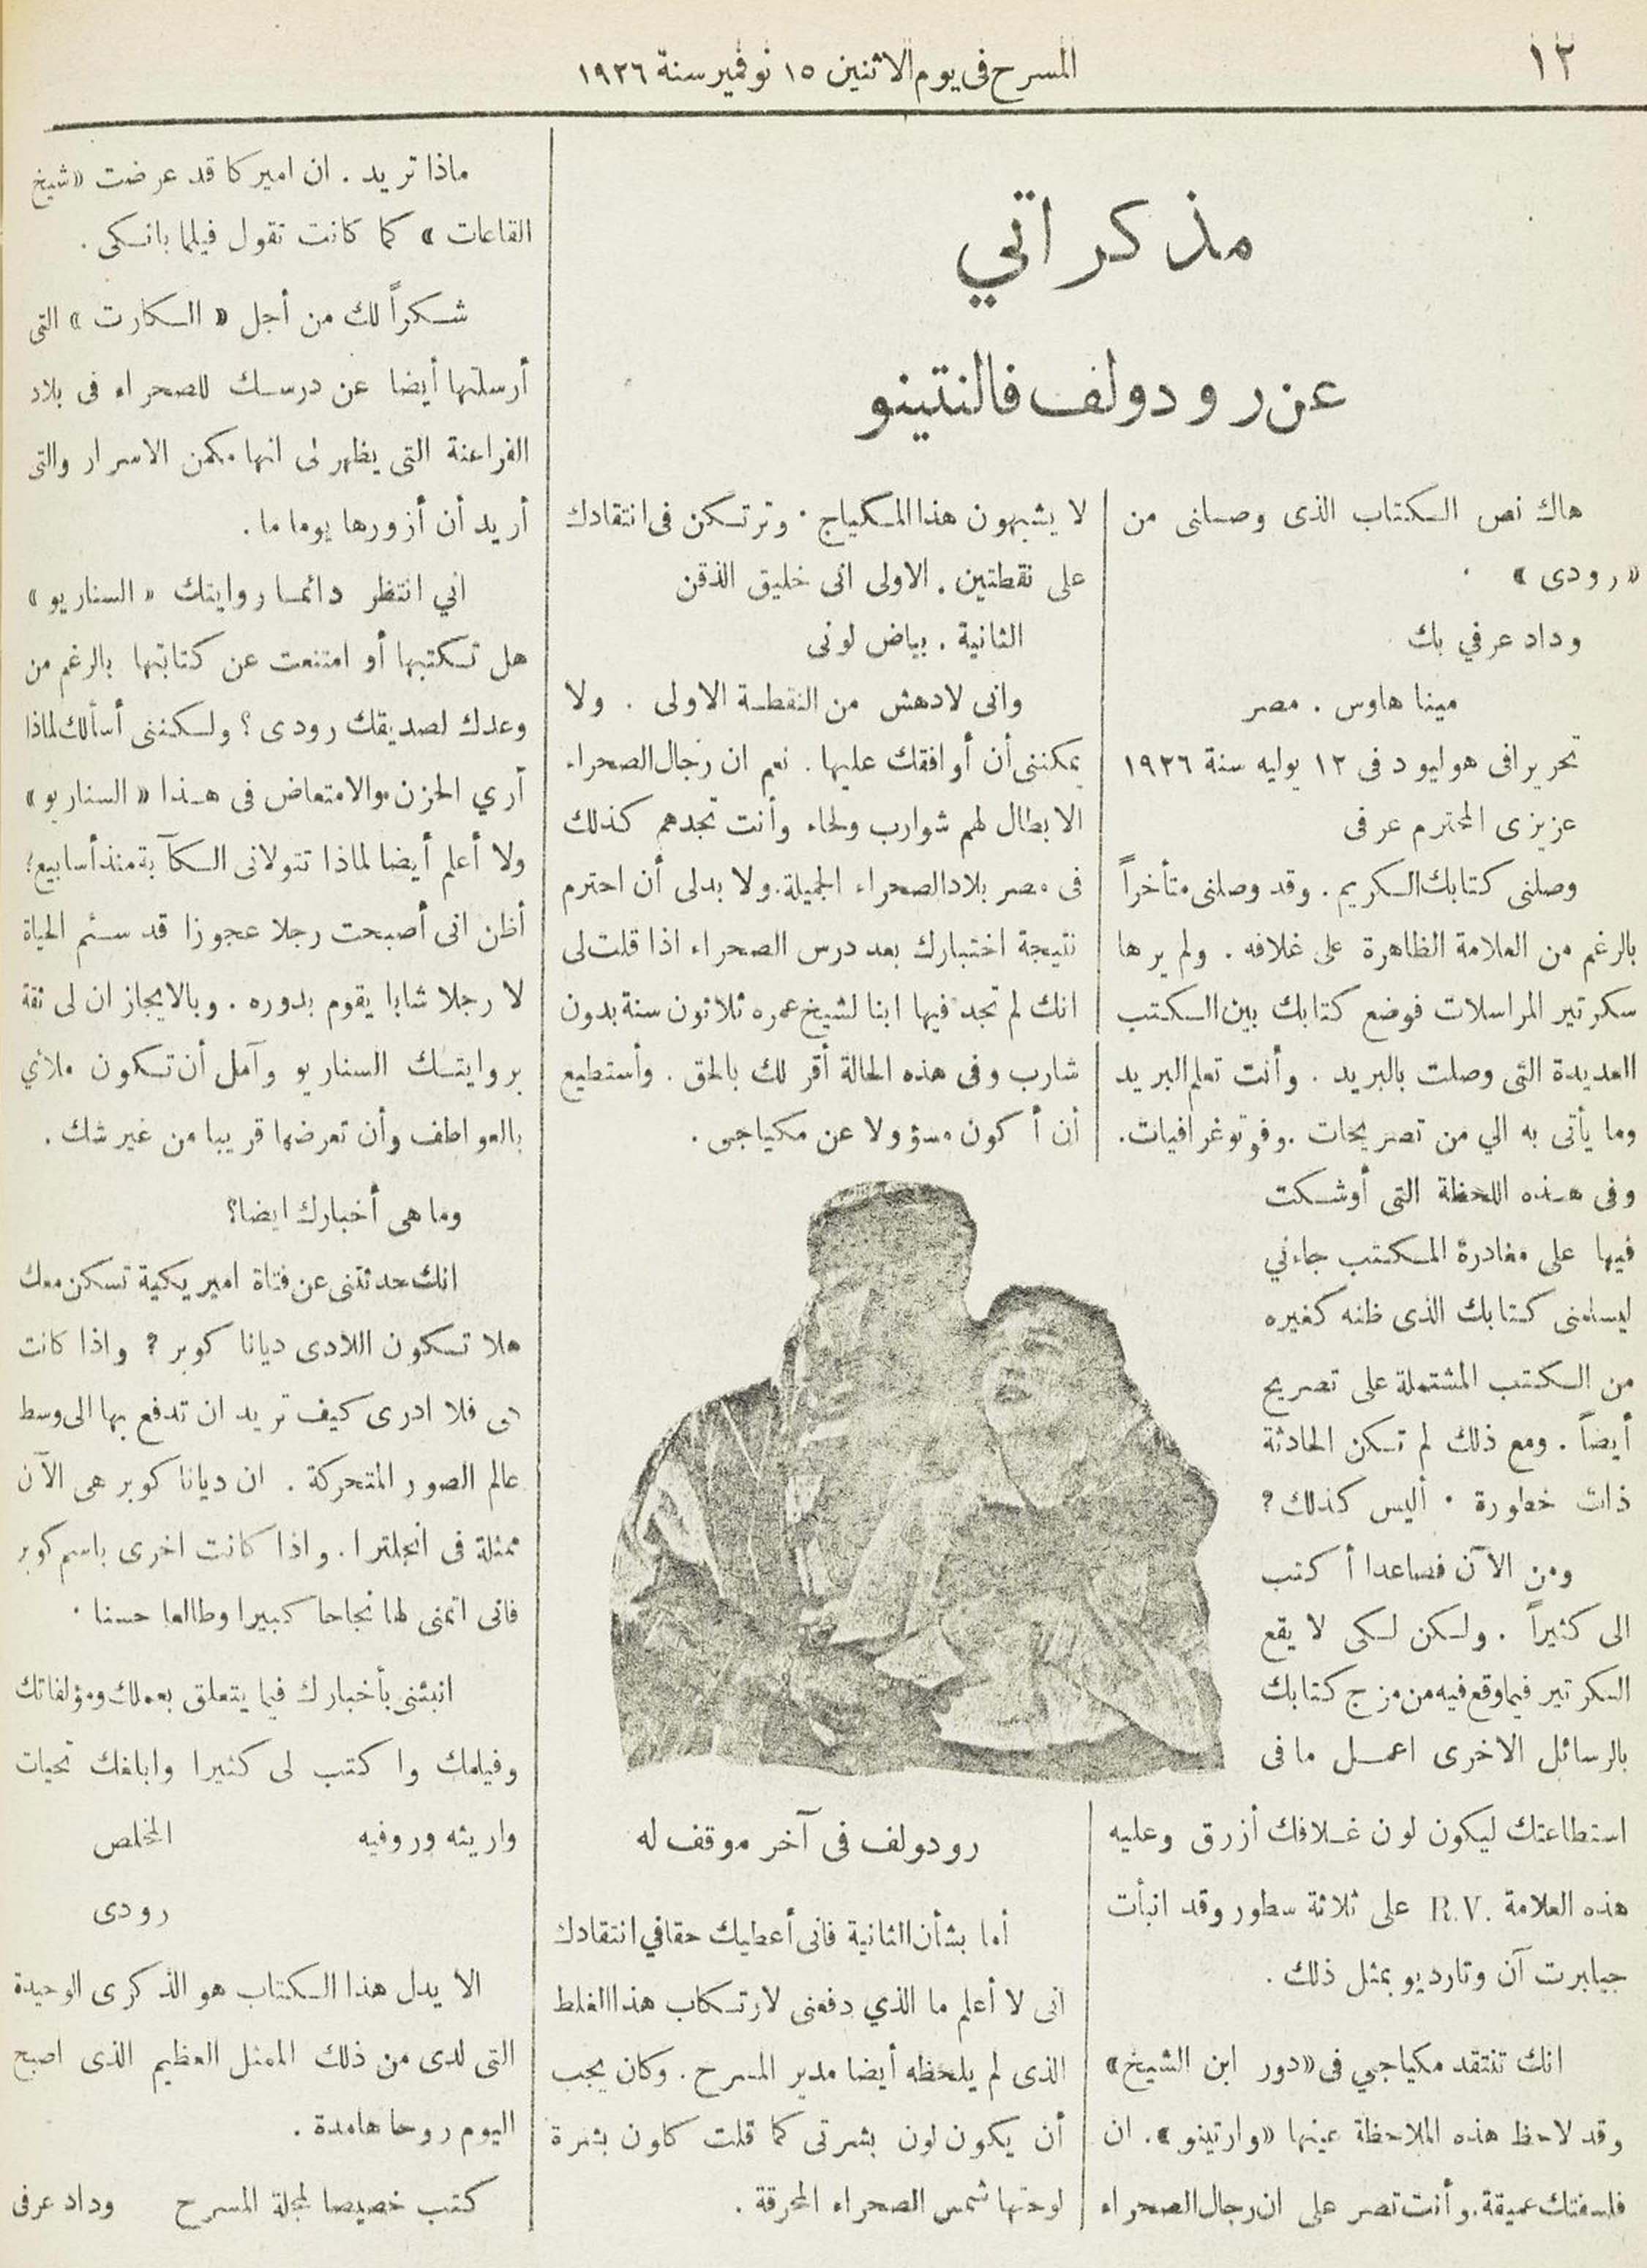 ١٢
المسرح فى يوم الاثنين ١٥ نوفمبر سنة ١٩٢٦
مذكراتي
عن رودولف فالنتينو
هاك نص الكتاب الذى وصلنى من
«رودى» .
وداد عرفي بك
مينا هاوس . مصر
تحريرا فى هوليود فى ١٢ يوليه سنة ١٩٢٦
عزيزى المحترم عرفى
وصلنى كتابك الكريم . وقد وصلنى متأخراً
بالرغم من العلامة الظاهرة على غلافه . ولم يرها
سكرتير المراسلات فوضع كتابك بين الكتب
العديدة التى وصلت بالبريد . وأنت تعلم البريد
وما يأتى به الي من تصريحات . وفوتوغرافيات.
وفى هذه اللحظة التى أوشكت
فيها على مغادرة المكتب جاءني
ليسلمنى كتابك الذى ظنه كغيره
من الكتب المشتملة على تصريح
أيضاً . ومع ذلك لم تكن الحادثة
ذات خطورة . أليس كذلك ؟
ومن الآن فصاعدا أكتب
الى كثيراً . ولكن لكى لا يقع
السكرتير فيما وقع فيه من مزج كتابك
بالرسائل الاخرى اعمل ما فى
استطاعتك ليكون لون غلافك أزرق وعليه
هذه العلامة R.V. على ثلاثة سطور وقد انبأت
جيابرت آن وتارديو بمثل ذلك .
انك تنتقد مكياجي فى «دور ابن الشيخ»
وقد لاحظ هذه الملاحظة عينها «وارتينو» . ان
فلسفتك عميقة. وأنت تصر على ان رجال الصحراء
لا يشبهون هذا المكياج . وترتكن فى انتقادك
على نقطتين . الاولى انى حليق الذقن
الثانية . بياض لونى
وانى لادهش من النقطة الاولى . ولا
يمكننى أن أوافقك عليها . نعم ان رجال الصحراء
الابطال لهم شوارب ولحاء وأنت تجدهم كذلك
فى مصر بلاد الصحراء الجميلة. ولا بد لى أن احترم
نتيجة اختبارك بعد درس الصحراء اذا قلت لى
انك لم تجد فيها ابنا لشيخ عمره ثلاثون سنة بدون
شارب وفى هذه الحالة أقر لك بالحق . وأستطيع
أن أكون مسؤولا عن مكياجى .
رودولف فى آخر موقف له
أما بشأن الثانية فانى أعطيك حقا في انتقادك
انى لا أعلم ما الذي دفعنى لارتكاب هذا الغلط
الذى لم يلحظه أيضا مدير المسرح . وكان يجب
أن يكون لون بشرتى كما قلت كلون بشرة
لوحتها شمس الصحراء المحرقة .
ماذا تريد . ان اميركا قد عرضت «شيخ
القاعات» كما كانت تقول فيلما بانكى .
شكراً لك من أجل «الكارت» التى
أرسلتها أيضا عن درسك للصحراء فى بلاد
الفراعنة التى يظهر لى انها مكمن الاسرار والتى
أريد أن أزورها يوما ما .
اني انتظر دائما روايتك «السناريو»
هل تكتبها أو امتنعت عن كتابتها بالرغم من
وعدك لصديقك رودى ؟ ولكننى أسألك لماذا
أري الحزن والامتعاض فى هذا «السناريو»
ولا أعلم أيضا لماذا تتولانى الكآبة منذ أسابيع!
أظن انى أصبحت رجلا عجوزا قد سئم الحياة
لا رجلا شابا يقوم بدوره . وبالايجاز ان لى ثقة
بروايتك السناريو وآمل أن تكون ملأي
بالعواطف وأن تعرضها قريبا من غير شك .
وما هى أخبارك ايضا؟
انك حدثتنى عن فتاة اميريكية تسكن معك
هلا تكون اللادى ديانا كوبر ؟ واذا كانت
هى فلا ادرى كيف تريد ان تدفع بها الى وسط
عالم الصور المتحركة . ان ديانا كوبر هى الآن
ممثلة فى انجلترا . واذا كانت اخرى باسم كوبر
فانى اتمنى لها نجاحا كبيرا وطالعا حسنا .
انبئنى بأخبارك فيما يتعلق بعملك ومؤلفاتك
وفيلمك واكتب لى كثيرا وابلغك تحيات
واريثه وروفيه المخلص
رودى
الا يدل هذا الكتاب هو الذكرى الوحيدة
التى لدى من ذلك الممثل العظيم الذى اصبح
اليوم روحا هامدة .
كتب خصيصا لمجلة المسرح وداد عرفى